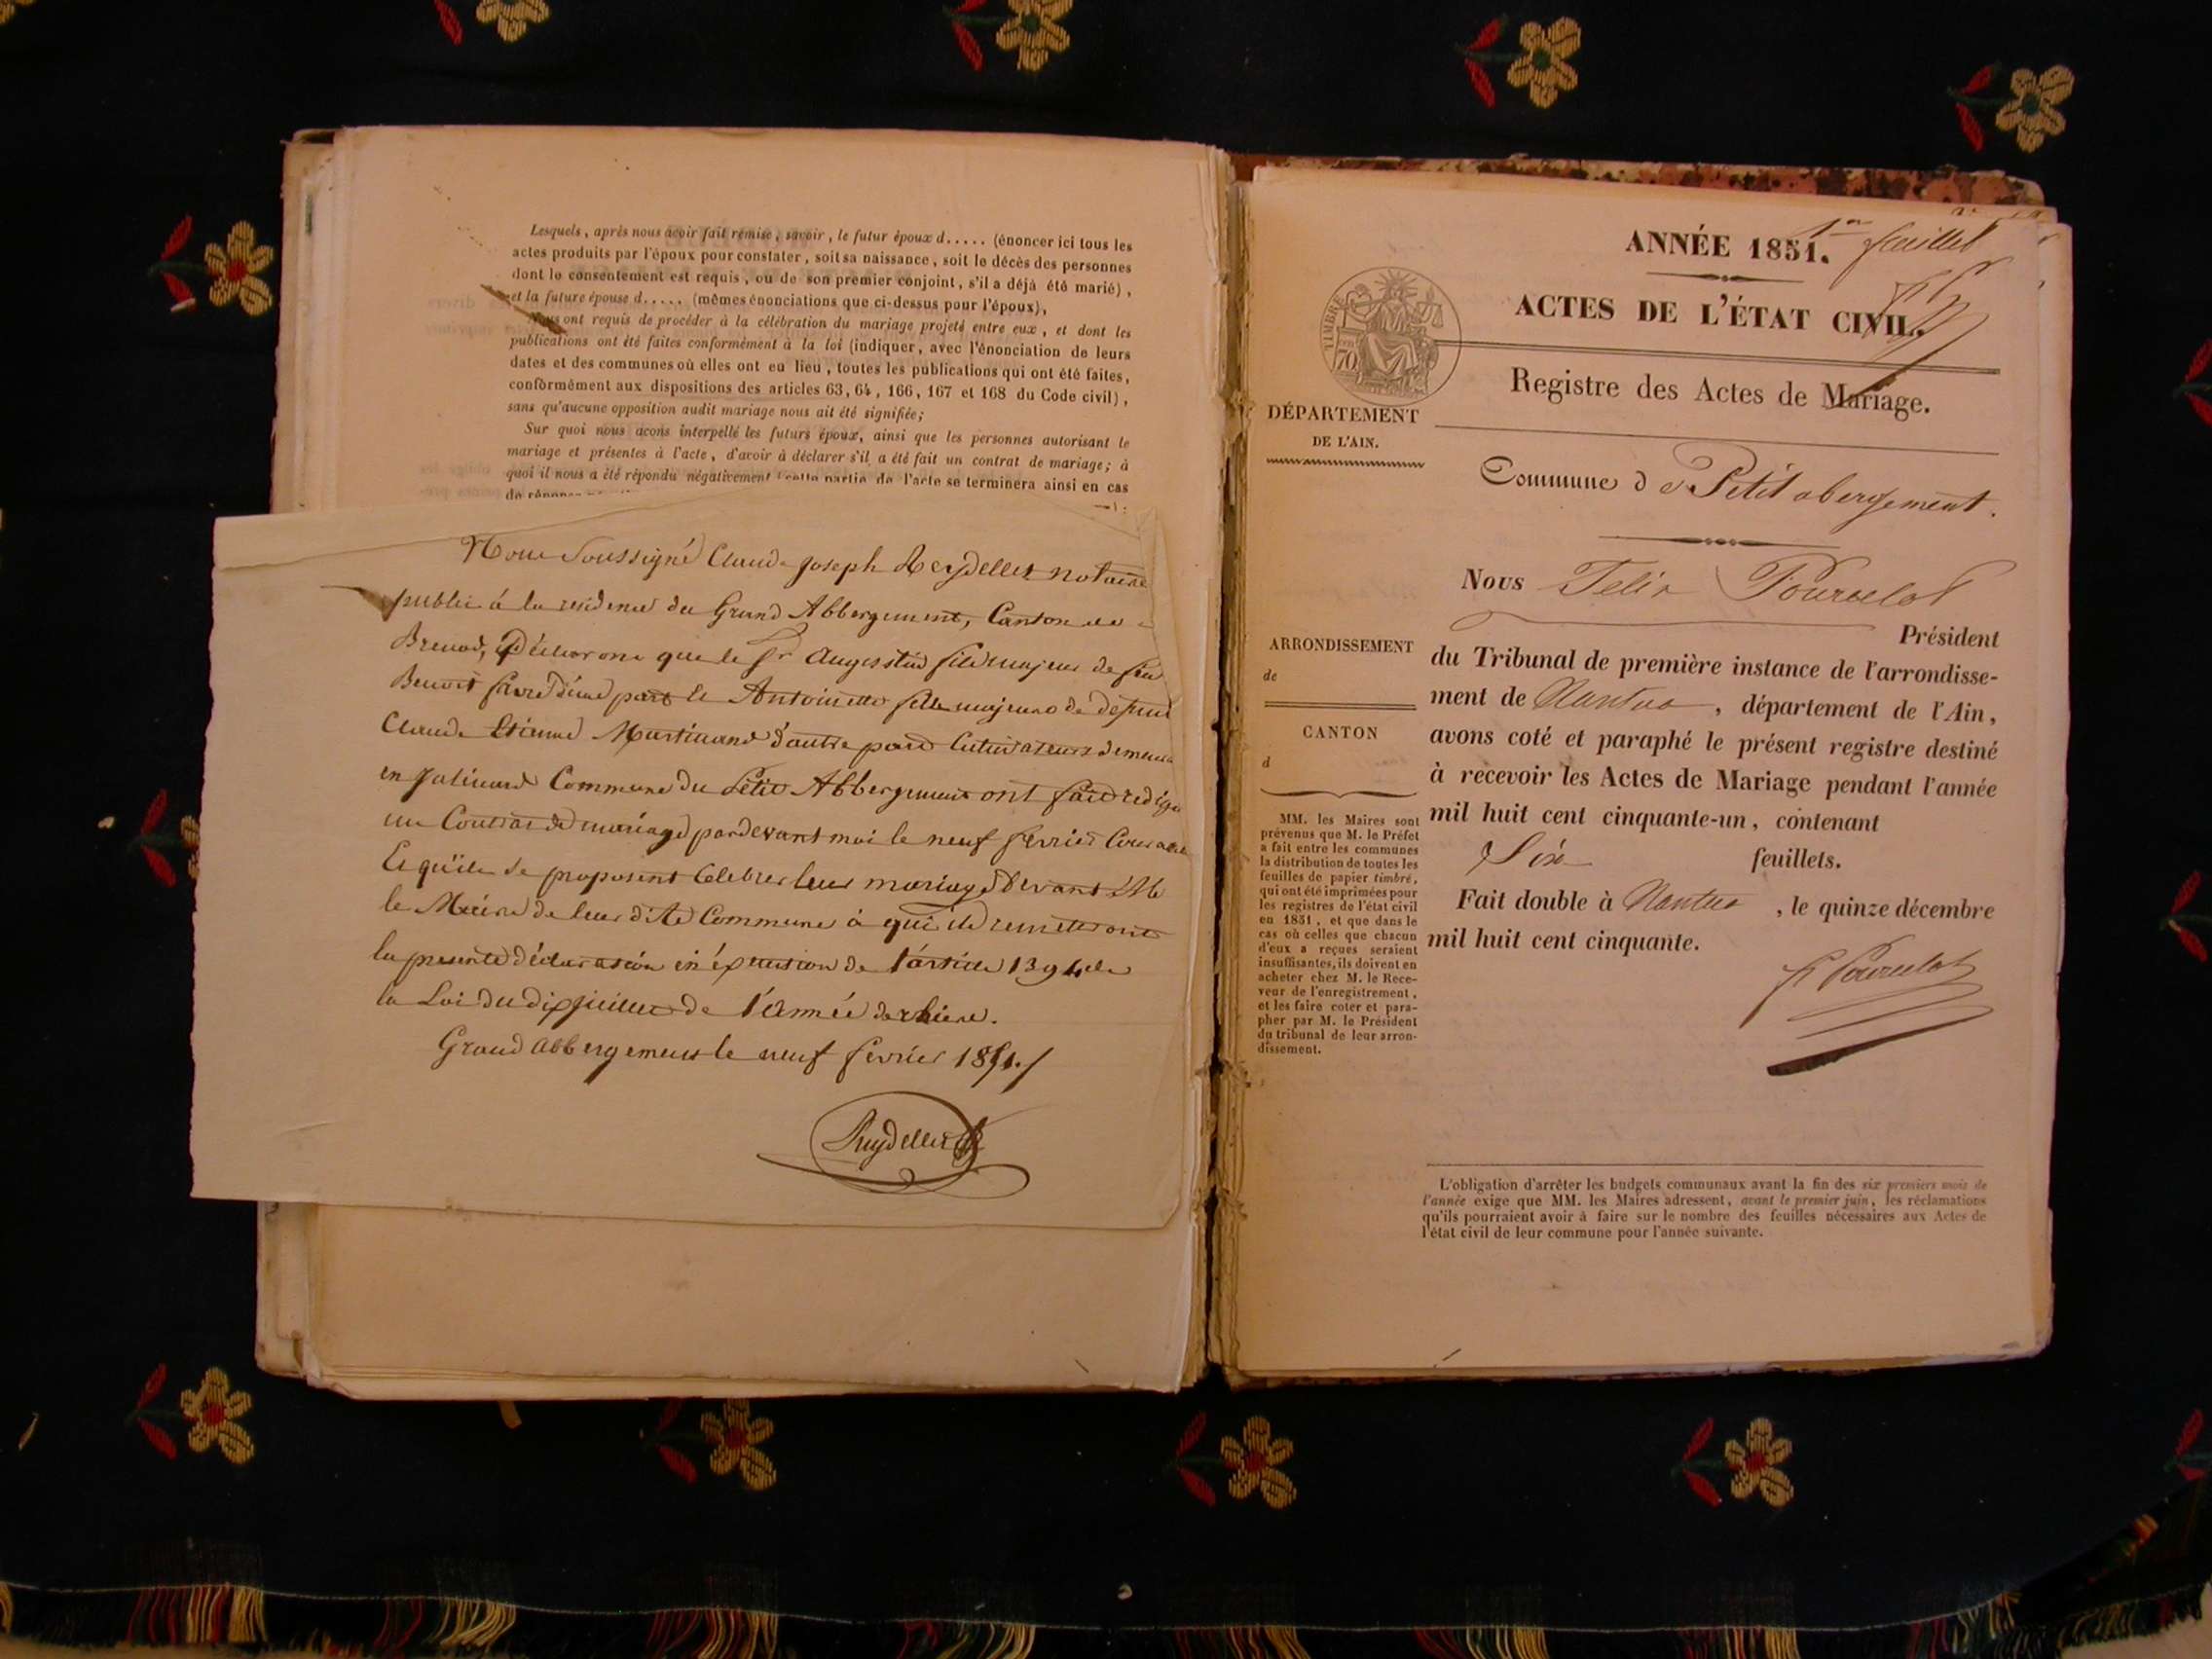 Lesquels, après nous avoir fait remise, savoir, le futur époux d..... (énoncer ici tous les
actes produits par l'époux pour constater, soit sa naissance, soit le décès des personnes
dont le consentement est requis, ou de son premier conjoint, s'il a déjà été marié),
et la future épouse d..... (mêmes énonciations que ci-dessus pour l'époux),
Nous ont requis de procéder à la célébration du mariage projeté entre eux, et dont les
publications ont été faites conformément à la loi (indiquer, avec l'énonciation de leurs
dates et des communes où elles ont eu lieu, toutes les publications qui ont été faites,
conformément aux dispositions des articles 63, 64, 166, 167 et 168 du Code civil),
sans qu'aucune opposition audit mariage nous ait été signifiée;
Sur quoi nous avons interpellé les futurs époux, ainsi que les personnes autorisant le
mariage et présentes à l'acte, d'avoir à déclarer s'il a été fait un contrat de mariage; à
quoi il nous a été répondu négativement (cette partie de l'acte se terminera ainsi en cas
Nous Soussigné Claude Joseph Reydellet notaire
public à la residence du Grand Abbergement, Canton de
Brenod, Déclarons que le Sr Augustin fils majeur de feu
Benoit favre d'une part et Antoinette fille majeure de defunt
Claude Etienne Martinand d'autre part Cultivateurs demeura
en Jalinard Commune du Petit Abbergement ont fait rediger
un Contrat de mariage pardevant moi le neuf fevrier Courant
Et qu'ils se proposent Célebrer leur mariage devant Mr
le Maire de leur dite Commune à qui ils remettront
la presente déclaration en éxecution de l'article 1394 de
la Loi du dix juillet de l'année derniere.
Grand abbergement le neuf fevrier 1851./
Reydellet
1er feuillet
ANNÉE 1851.
ACTES DE L'ÉTAT CIVIL.
Registre des Actes de Mariage.
TIMBRE
70
DÉPARTEMENT
DE L'AIN.
Commune de Petit abergement.
Nous Felix Pourcelot
Président
du Tribunal de première instance de l'arrondisse-
ment de Nantua, département de l'Ain,
avons coté et paraphé le présent registre destiné
à recevoir les Actes de Mariage pendant l'année
mil huit cent cinquante-un, contenant
Six feuillets.
Fait double à Nantua, le quinze décembre
mil huit cent cinquante.
F Pourcelot
ARRONDISSEMENT
de
CANTON
d
MM. les Maires sont
prévenus que M. le Préfet
a fait entre les communes
la distribution de toutes les
feuilles de papier timbré,
qui ont été imprimées pour
les registres de l'état civil
en 1851, et que dans le
cas où celles que chacun
d'eux a reçues seraient
insuffisantes, ils doivent en
acheter chez M. le Rece-
veur de l'enregistrement,
et les faire coter et para-
pher par M. le Président
du tribunal de leur arron-
dissement.
L'obligation d'arrêter les budgets communaux avant la fin des six premiers mois de
l'année exige que MM. les Maires adressent, avant le premier juin, les réclamations
qu'ils pourraient avoir à faire sur le nombre des feuilles nécessaires aux Actes de
l'état civil de leur commune pour l'année suivante.